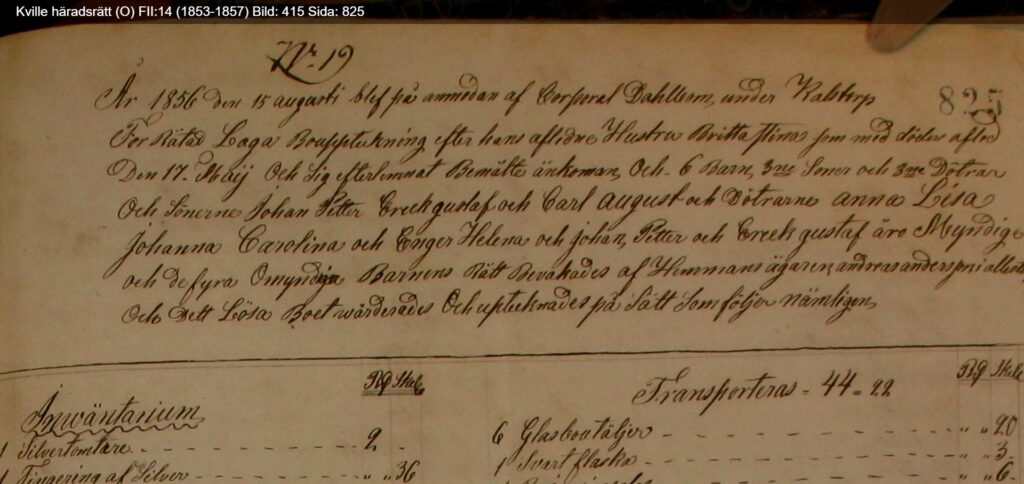 Kville häradsrätt (O) FII:14 (1853-1857) Bild: 415 Sida: 825
Nr. 19
825
År 1856 den 15 augusti blef på anmodan af Corporal Dahlbom, under Kalstorp
För Rätad Laga Boupptekning efter hans aflidne Hustru Britta Stina som med döden afled
Den 17. Maij Och Sig efterlemnat Bemälte änkoman, Och 6 Barn, 3ne Söner och 3ne Dötrar
Och Sönerne Johan Petter Ereck gustaf och Carl august och Dötrarne anna Lisa
Johanna Carolina och Enger Helena och johan, Petter och Ereck gustaf äro Myndige
och de fyra Omyndiga Barnens Rätt Bevakades af Hemmans ägaren andreas anderson i
Och Dett Lösa Boet wärderades Och upteknades på Sätt Som följer nämligen,
Rd Skel
Inwäntarium
1 Silvertemtare 2.
1 Fingering af Silver " " 36
Rd Skel
Transporteras 44 - 22
6 Glasboutäljer " " 20
1 Svart flaska " " 3
" " 6